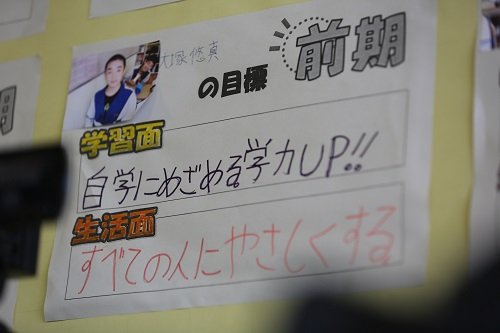 前期
大塚悠真
の目標
学習面
自学にめざめる学力UP!!
生活面
すべての人にやさしくする